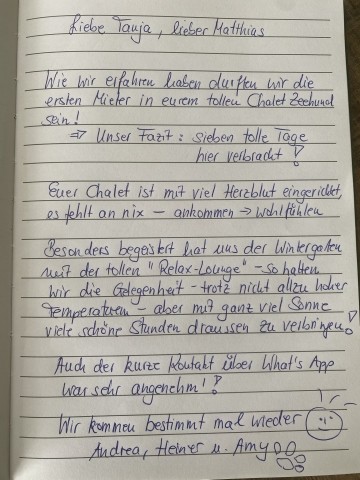 Liebe Tanja, lieber Matthias
Wie wir erfahren haben durften wir die
ersten Mieter in eurem tollen Chalet Zeehund
sein!
⇒ Unser Fazit: sieben tolle Tage
hier verbracht!
Euer Chalet ist mit viel Herzblut eingerichtet,
es fehlt an nix – ankommen → wohlfühlen
Besonders begeistert hat uns der Wintergarten
mit der tollen "Relax-Lounge" – so hatten
wir die Gelegenheit – trotz nicht allzu hoher
Temperaturen – aber mit ganz viel Sonne
viele schöne Stunden draussen zu verbringen!
Auch der kurze Kontakt über What's App
war sehr angenehm!!
Wir kommen bestimmt mal wieder
Andrea, Heiner u. Amy